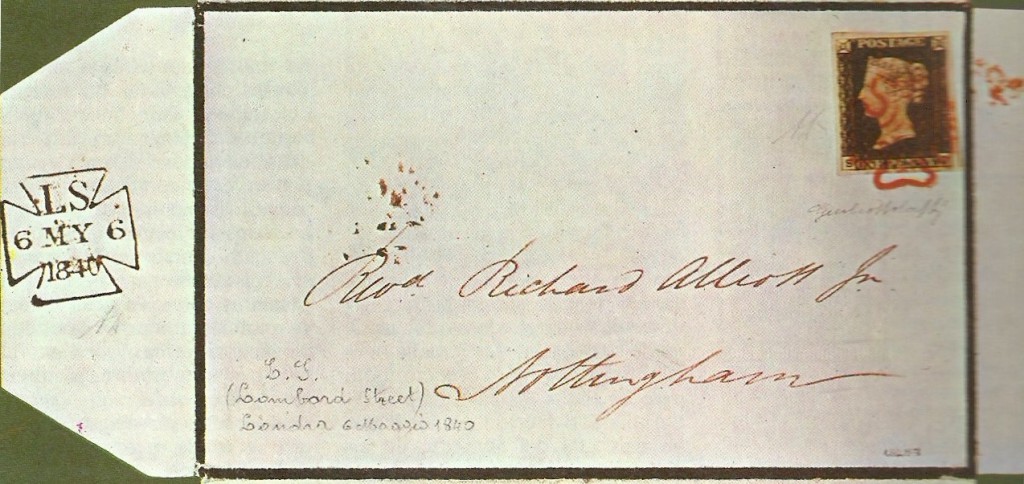 LS
6 MY 6
1840
POSTAGE
ONE PENNY
Revd. Richard Alliott Jn.
Nottingham
L. S.
(Lombard Street)
Londra 6 Maggio 1840